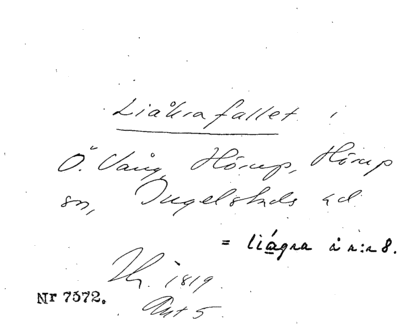 Liåkra fallet i
Ö. Vång, Hörup, Hörup
sn, Ingelstads hd
= liágra å n:r 8.
1819
Akt 5
Nr 7572.